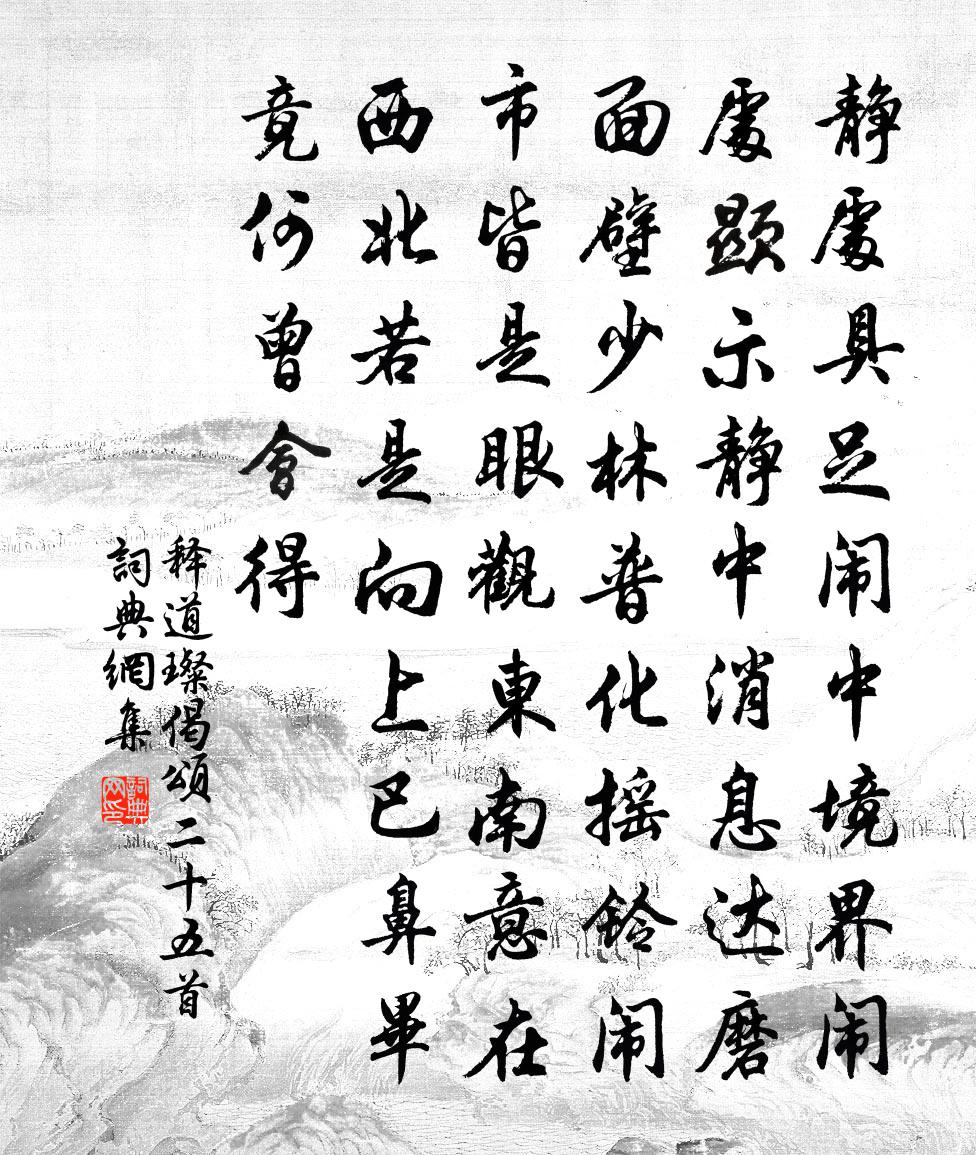 静處具足闹中境界闹
處顯示静中消息达磨
面壁少林普化摇鈴闹
市皆是眼觀東南意在
西北若是向上巴鼻畢
竟何曾會得
释道璨偈頌二十五首
詞典網集
詞典网印